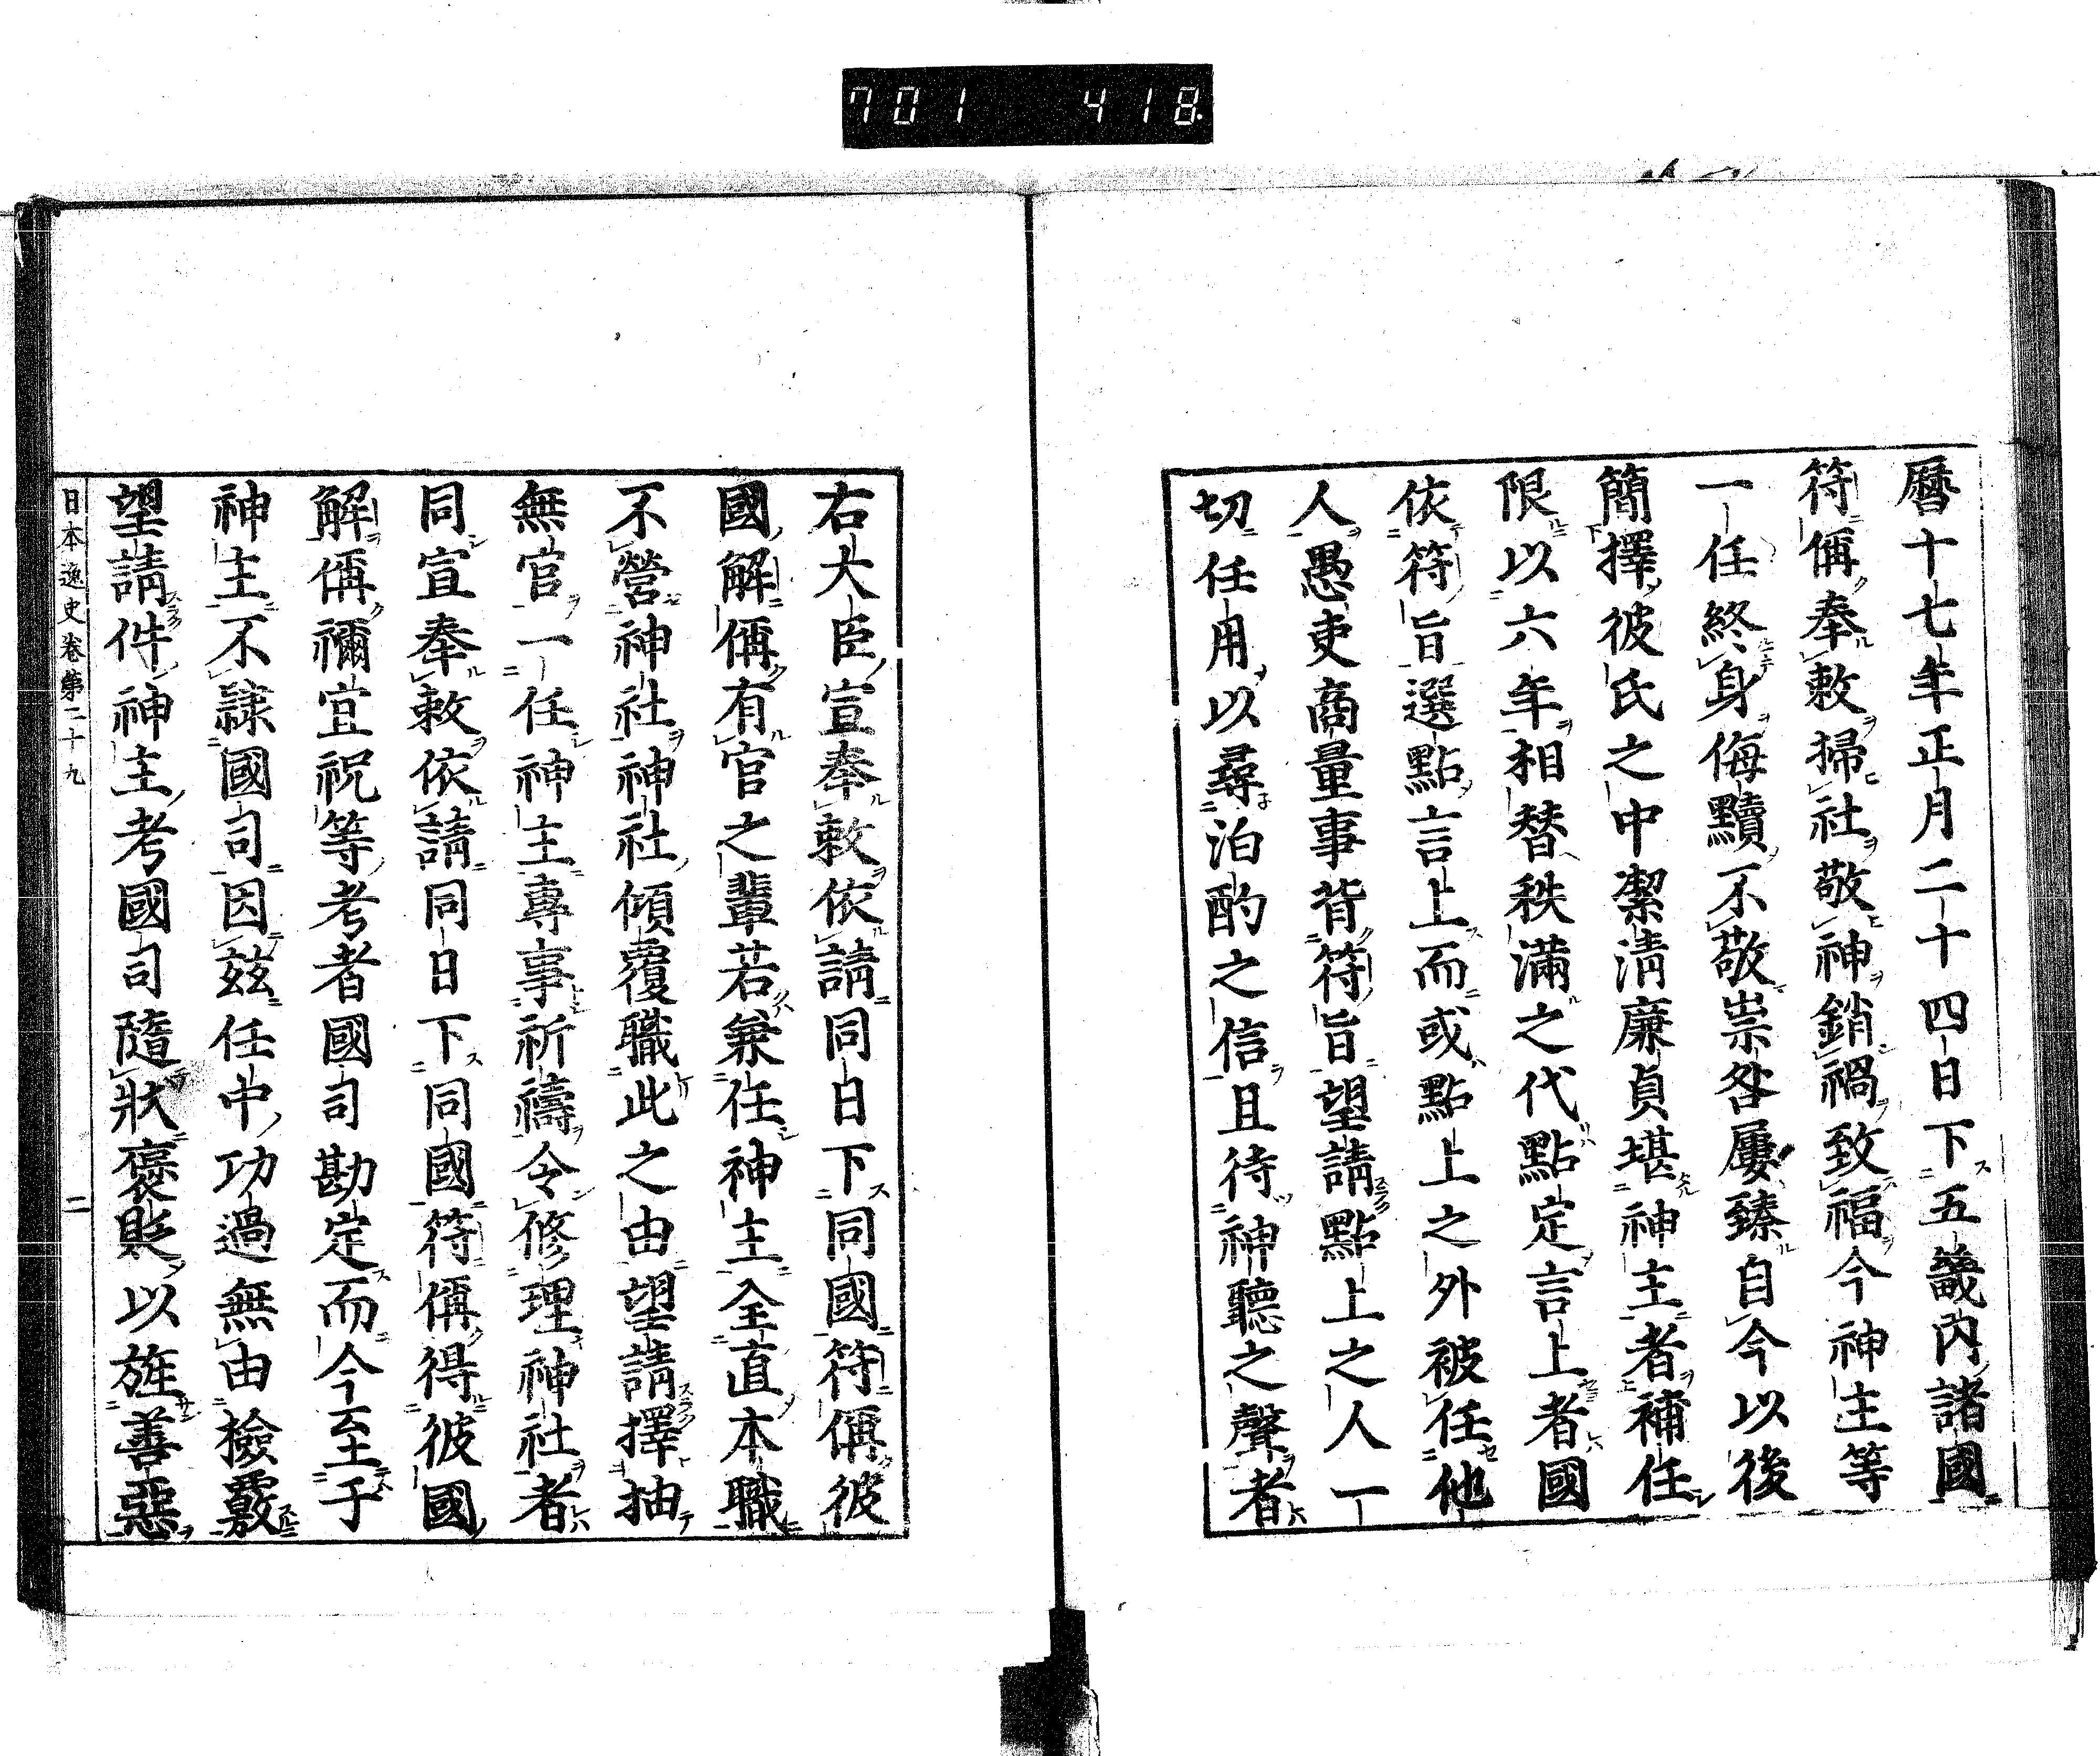 701 418
曆十七年正月二十四日下五畿內諸國
符偁奉敕掃社敬神銷禍致福今神主等
一任終身侮黷不敬祟咎屢臻自今以後
簡擇彼氏之中潔清廉貞堪神主者補任
限以六年相替秩滿之代點定言上者國
依符旨選點言上而或點上之外被任他
人愚吏商量事背符旨望請點上之人一
切任用以尋泊酌之信且待神聽之聲者
右大臣宣奉敕依請同日下同國符偁彼
國解偁有官之輩若兼任神主全直本職
不營神社神社傾覆職此之由望請擇抽
無官一任神主專事祈禱令修理神社者
同宣奉敕依請同日下同國符偁得彼國
解偁禰宜祝等考者國司勘定而今至于
神主不隷國司因玆任中功過無由檢覈
望請件神主考國司隨狀褒貶以旌善惡
日本逸史卷第二十九 二